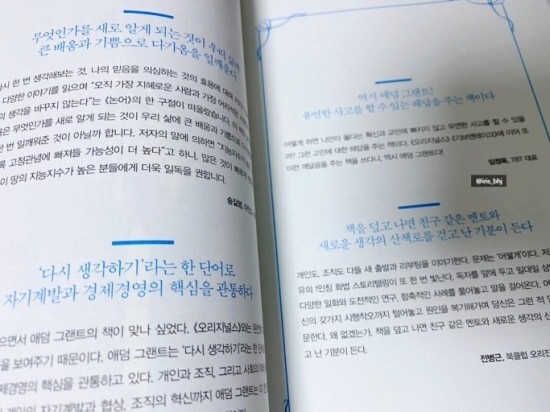 무엇인가를 새로 알게 되는 것이 우리 삶에
큰 배움과 기쁨으로 다가옴을 일깨운다
다시 한 번 생각해보는 것, 나의 믿음을 의심하는 것의 효용에 대해
다양한 이야기를 읽으며 "오직 가장 지혜로운 사람과 가장 어리석은
생각을 바꾸지 않는다"는 《논어》의 한 구절이 떠올랐습니다. 이
은 무엇인가를 새로 알게 되는 것이 우리 삶에 큰 배움과 기쁨으로
한 번 일깨워준 것이 아닐까 합니다. 저자의 말에 의하면 "지능지수가
록 고정관념에 빠져들 가능성이 더 높다"고 하니, 많은 것이 빠르게
이 땅의 지능지수가 높은 분들에게 더욱 일독을 권합니다.
송길영,
'다시 생각하기'라는 한 단어로
자기계발과 경제경영의 핵심을 관통하다
으면서 애덤 그랜트의 책이 맞나 싶었다. 《오리지널스》와는
을 보여주기 때문이다. 애덤 그랜트는 '다시 생각하기'라는 한 단
제경영의 핵심을 관통하고 있다. 개인과 조직, 그리고 사회의
자기계발과 협상, 조직의 혁신까지 애덤 그랜트는 이 한
역시 애덤 그랜트!
유연한 사고를 할 수 있는 해답을 주는 책이다
어떻게 하면 나만이 옳다는 확신과 교만에 빠지지 않고 유연한 사고를 할 수 있을
까? 그런 고민에 대한 해답을 주는 책이다. 《오리지널스》《기브앤테이크》에 이어 또
이런 깨달음을 주는 책을 쓰다니, 역시 애덤 그랜트다!
임정욱, TBT 대표
@iris_bhj
책을 덮고 나면 친구 같은 멘토와
새로운 생각의 산책로를 걷고 난 기분이 든다
개인도, 조직도 다들 새 출발과 리부팅을 이야기한다. 문제는 '어떻게'이다.
유의 1인칭 화법 스토리텔링이 또 한 번 빛난다. 독자를 앞에 두고 일대일
다양한 일화와 도전적인 연구, 함축적인 사례를 풀어놓고 말을 걸어온다.
신의 갖가지 시행착오까지 털어놓고 원인을 복기해가며 당신은 그런 적
문한다. 왜 없겠는가. 책을 덮고 나면 친구 같은 멘토와 새로운 생각의 산
고 난 기분이 든다.
전병근, 북클럽 오리진